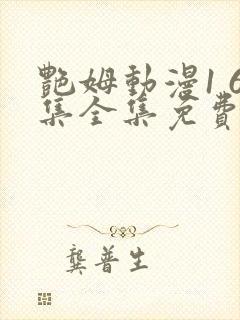 艷姆動漫1 6
集全集免費
龔普生